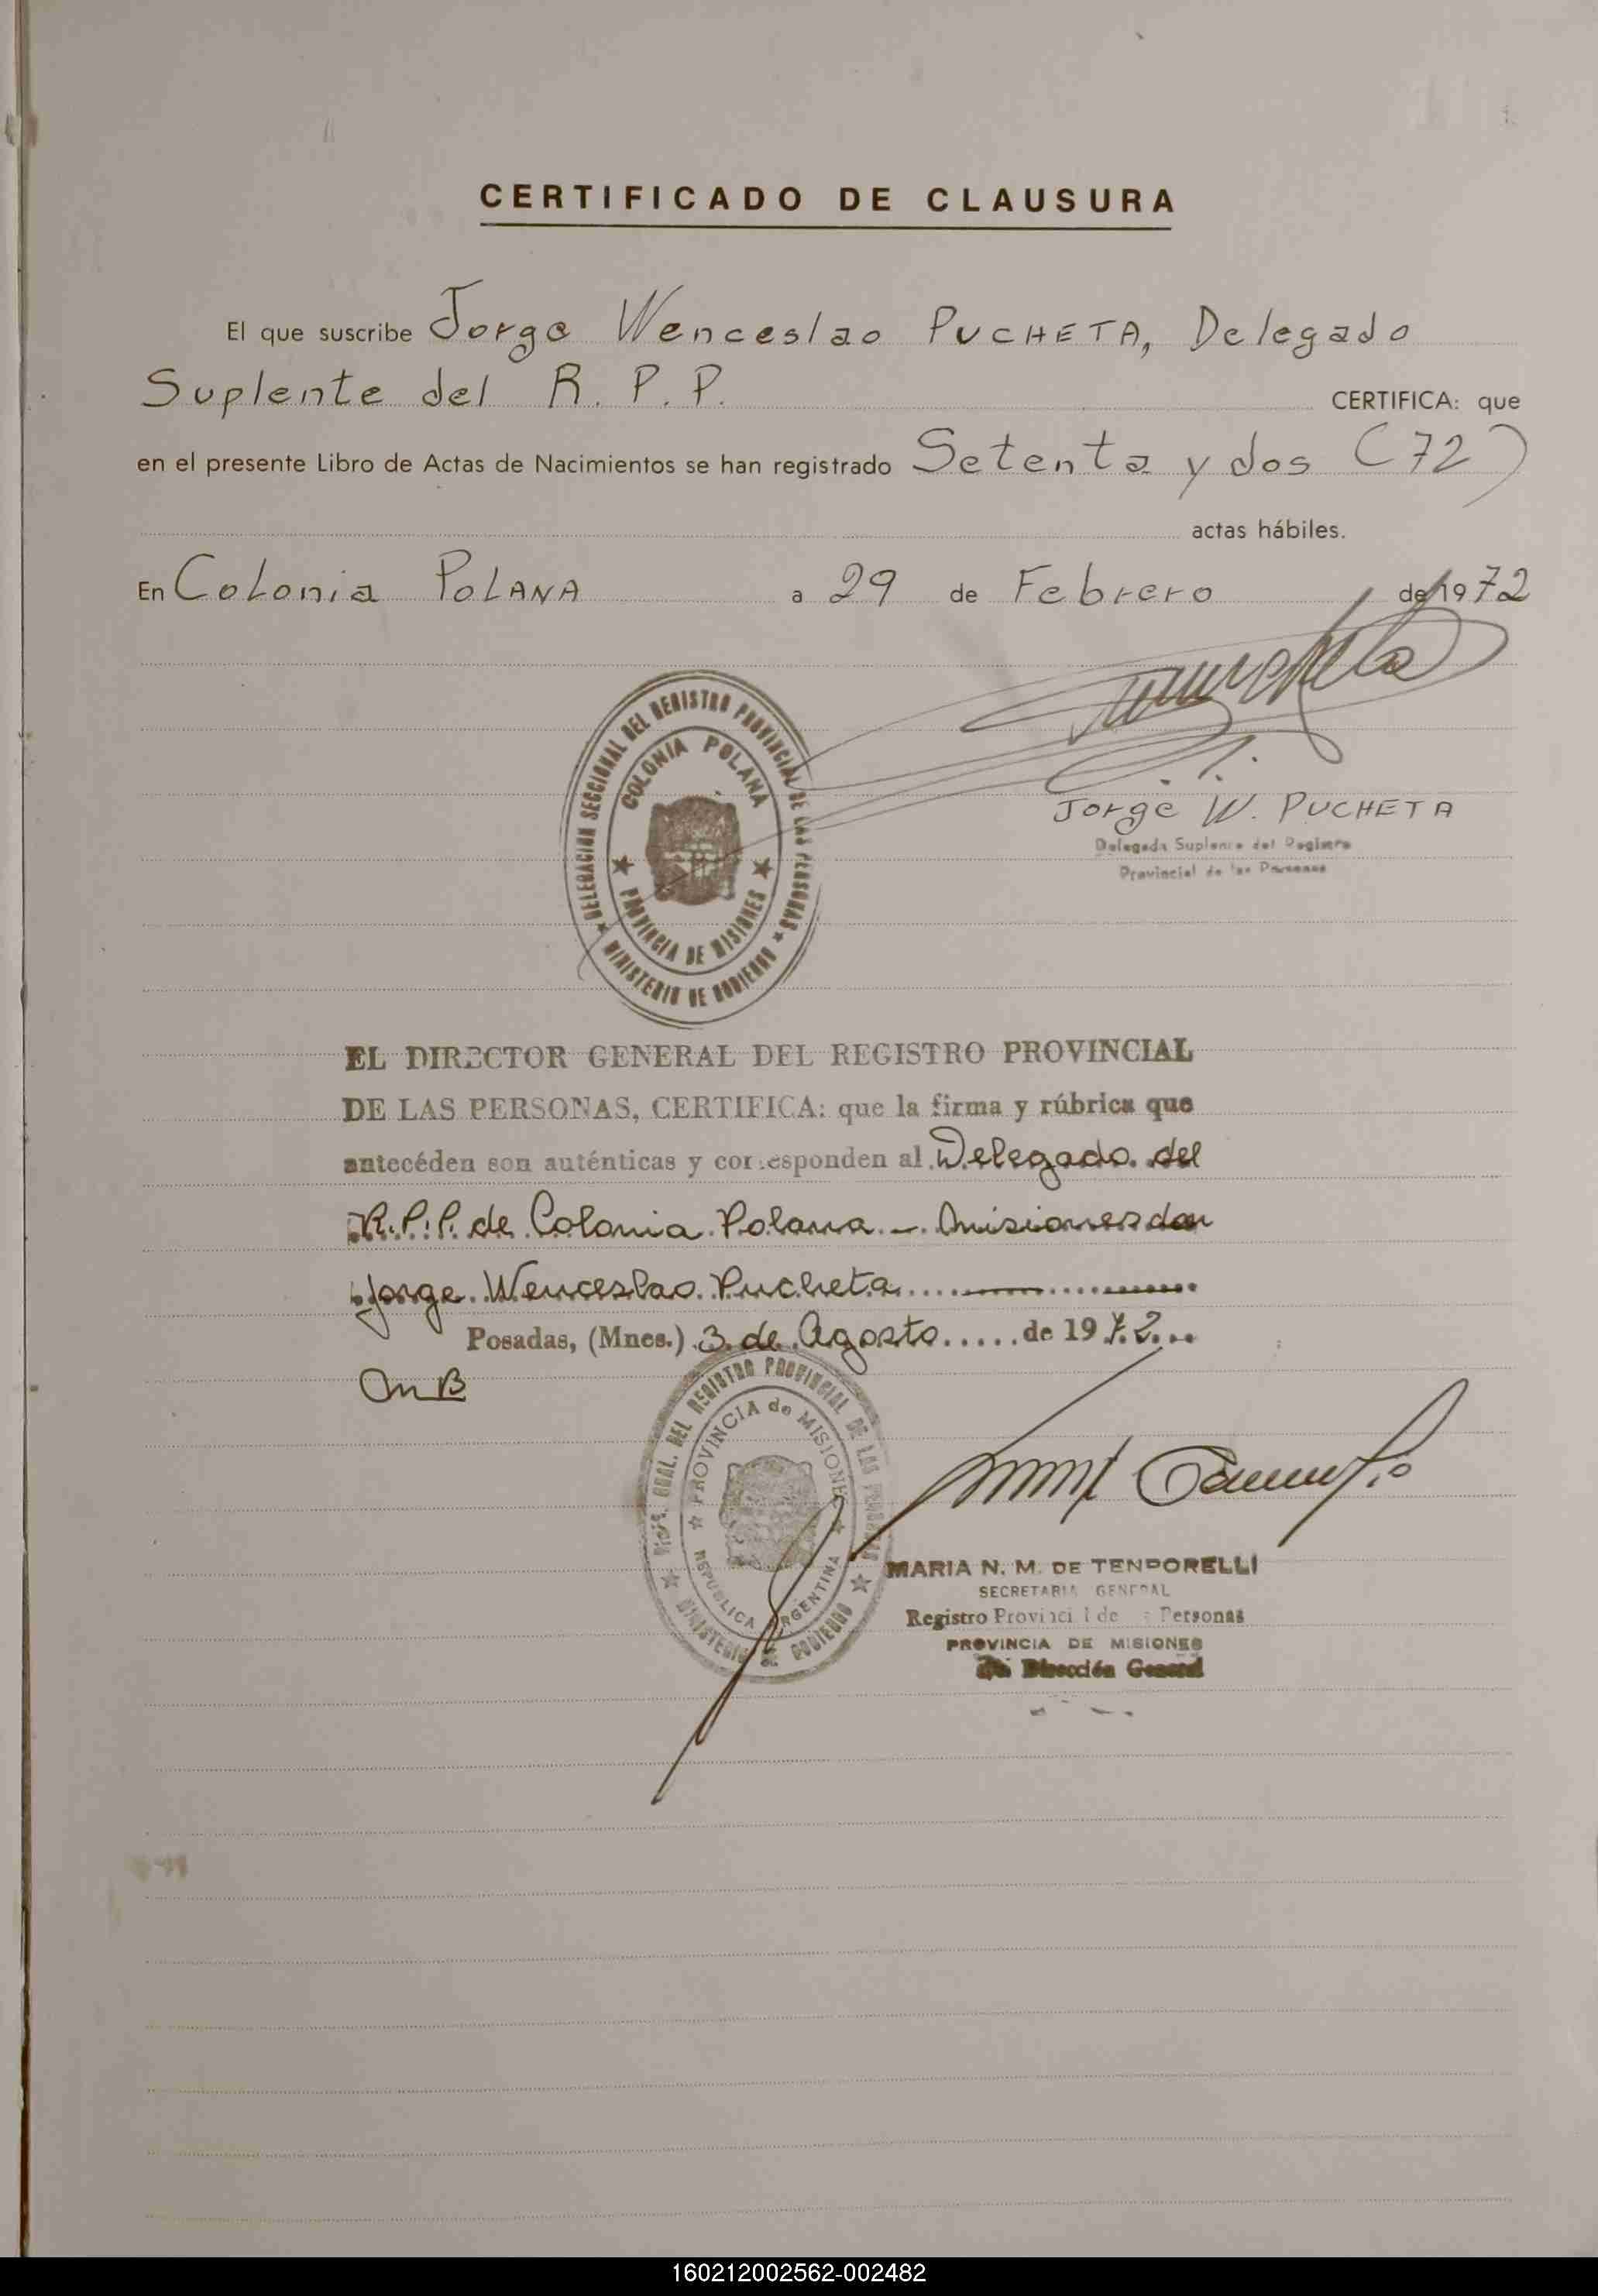 CERTIFICADO DE CLAUSURA
El que suscribe Jorge Wenceslao PUCHETA, Delegado
Suplente del R. P. P. CERTIFICA: que
en el presente Libro de Actas de Nacimientos se han registrado Setenta y dos (72)
actas hábiles.
En Colonia POLANA a 29 de Febrero de 1972
DELEGACION SECCIONAL DEL REGISTRO PROVINCIAL DE LAS PERSONAS
COLONIA POLANA
PROVINCIA DE MISIONES
MINISTERIO DE GOBIERNO
Jorge W. PUCHETA
Delegado Suplente del Registro
Provincial de las Personas
EL DIRECTOR GENERAL DEL REGISTRO PROVINCIAL
DE LAS PERSONAS, CERTIFICA: que la firma y rúbrica que
antecéden son auténticas y corresponden al Delegado del
R.P.P. de Colonia Polana - Misiones don
Jorge Wenceslao Pucheta
Posadas, (Mnes.) 3 de Agosto de 1972
DIREC. GRAL. DEL REGISTRO PROVINCIAL DE LAS PERSONAS
PROVINCIA de MISIONES
REPUBLICA ARGENTINA
MINISTERIO DE GOBIERNO
MARIA N. M. DE TENPORELLI
SECRETARIA GENERAL
Registro Provincial de Personas
PROVINCIA DE MISIONES
Dirección General
160212002562-002482